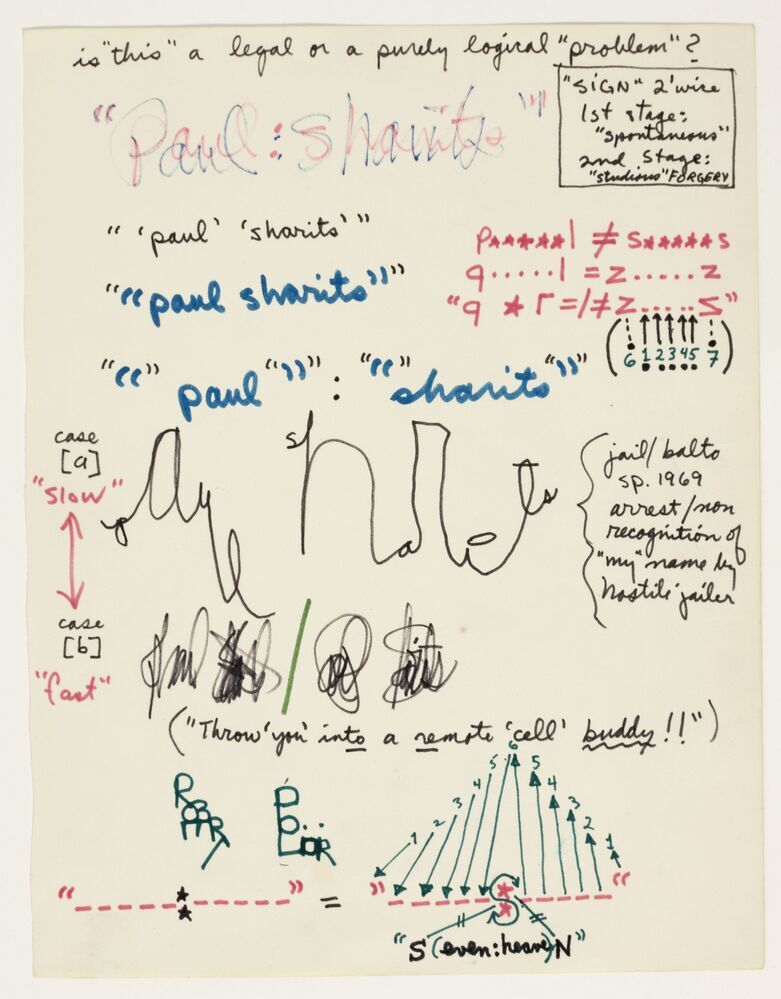 is "this" a legal or a purely logical "problem"?
"Paul: Sharits"
"SIGN" 2'wice
1st stage:
"spontaneous"
2nd stage:
"studious" FORGERY
" 'paul' 'sharits' "
""paul sharits""
"" "paul" "" : "" "sharits" ""
p*****l ≠ s*****s
q.....l = z.....z
"q * r =/≠ z.....s"
(6 1 2 3 4 5 7)
case
[a]
"slow"
case
[b]
"fast"
paul sharits
jail/balto
sp. 1969
arrest/non
recognition of
"my" name by
hostile jailer
("Throw 'you' into a remote 'cell' buddy!!")
1 2 3 4 5 6 5 4 3 2 1
" - - - - - * * - - - - - " = " - - - - - * * - - - - - "
"S(even:heave)N"